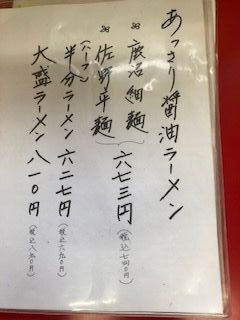 あっさり醤油ラーメン
※ 鹿沼細麺
※ 佐野平麺
六七三円
(税込七四〇円)
(ハーフ)
半分ラーメン 六二七円
(税込六九〇円)
大盛ラーメン 八一〇円
(税込八九〇円)